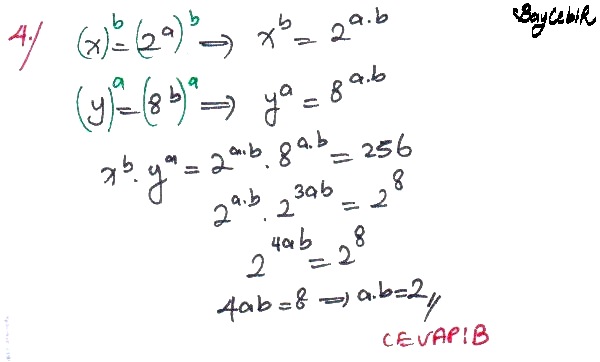 BayCebiR
4./ (x)^b = (2^a)^b ⟹ x^b = 2^{a.b}
(y)^a = (8^b)^a ⟹ y^a = 8^{a.b}
x^b . y^a = 2^{a.b} . 8^{a.b} = 256
2^{a.b} . 2^{3ab} = 2^8
2^{4ab} = 2^8
4ab = 8 ⟹ a.b = 2 //
CEVAP!B